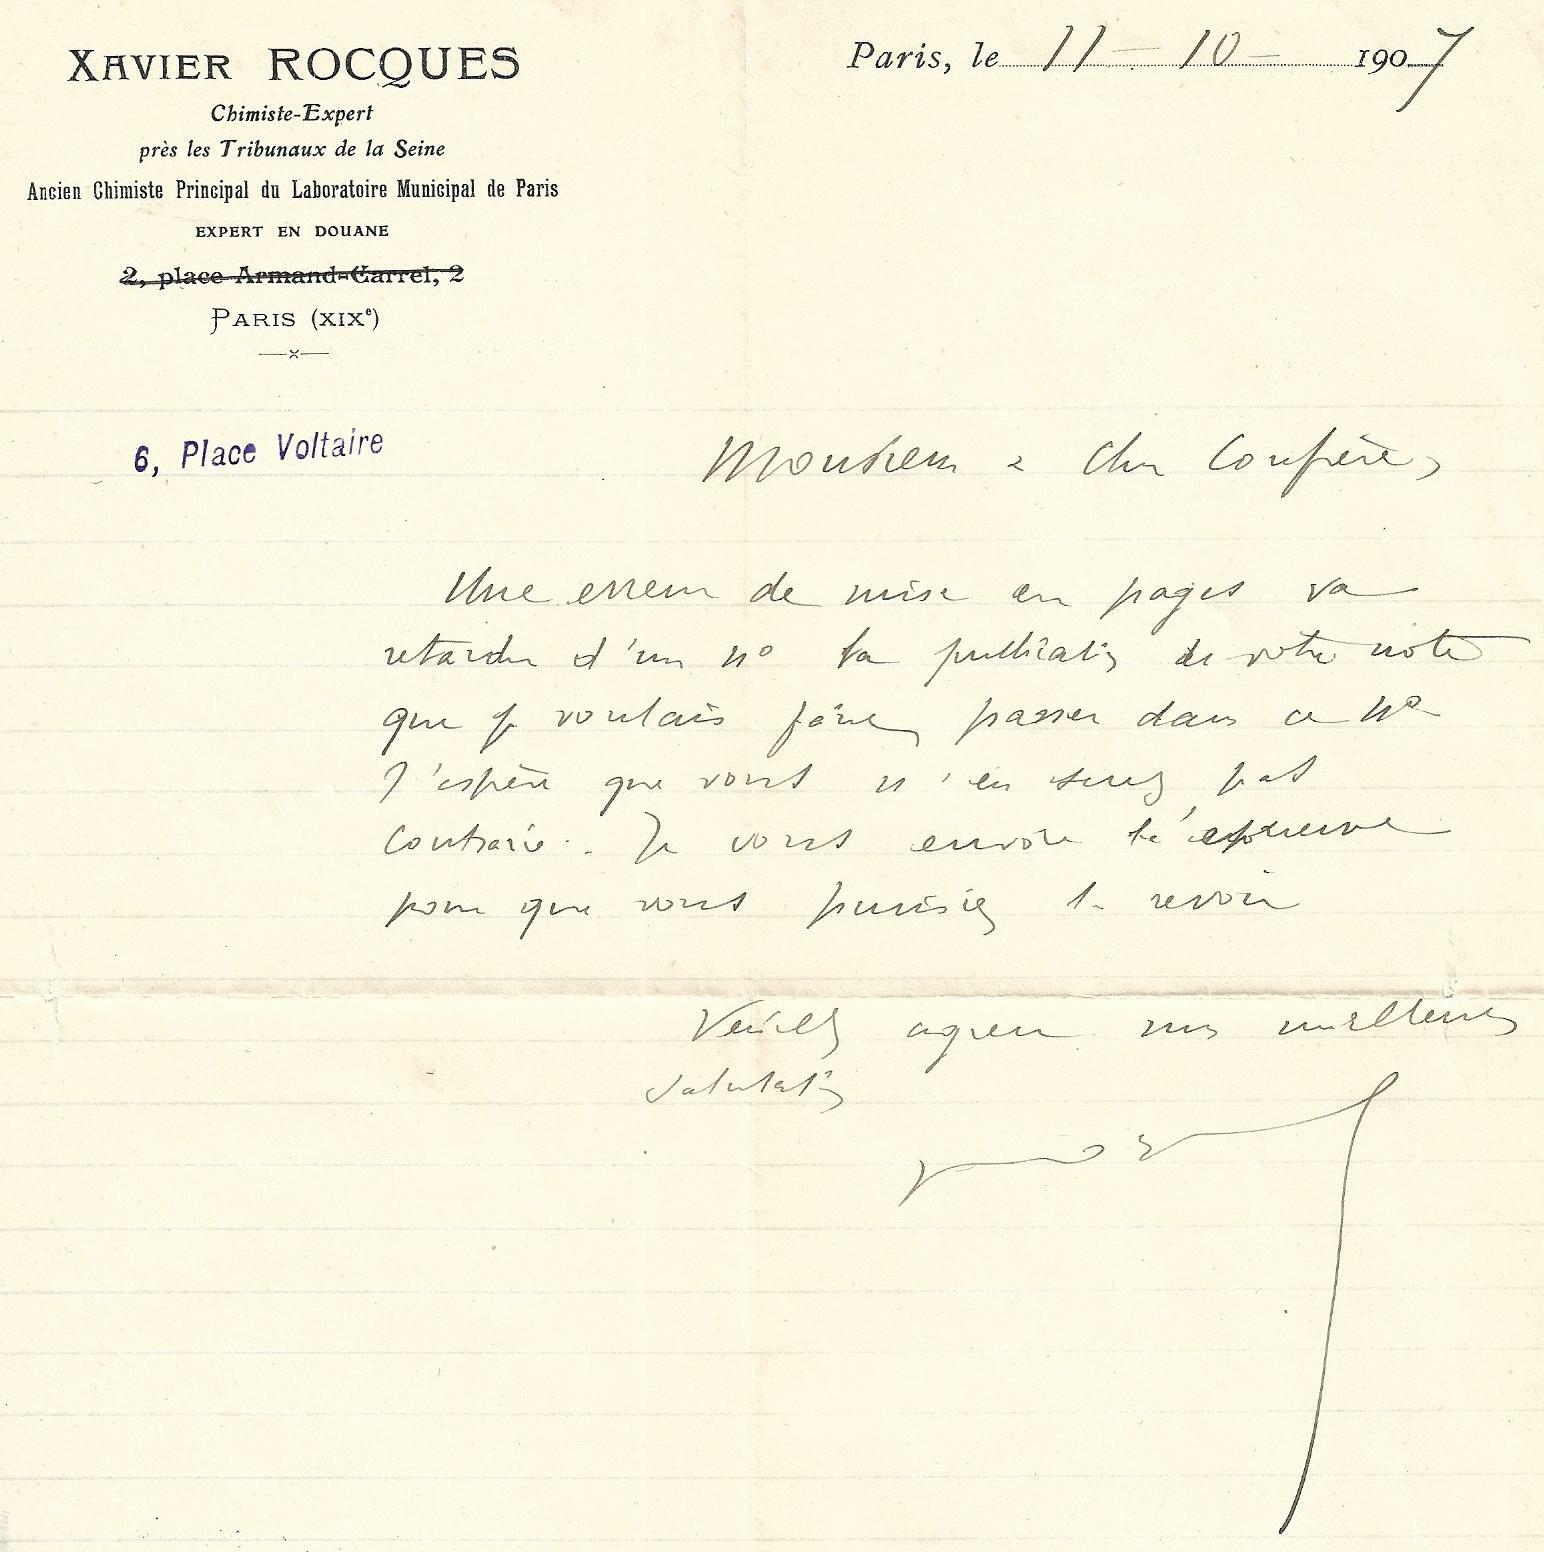 XAVIER ROCQUES
Chimiste-Expert
près les Tribunaux de la Seine
Ancien Chimiste Principal du Laboratoire Municipal de Paris
EXPERT EN DOUANE
2, place Armand-Carrel, 2
PARIS (XIXe)
6, Place Voltaire
Paris, le 11-10-1907
Monsieur & Cher Confrère,
Une erreur de mise en pages va
retarder d'un no la publication de votre note
que je voulais faire passer dans ce no
J'espère que vous n'en serez pas
contrarié. Je vous envoie l'épreuve
pour que vous puissiez la revoir
Veuillez agréer mes meilleures
salutations